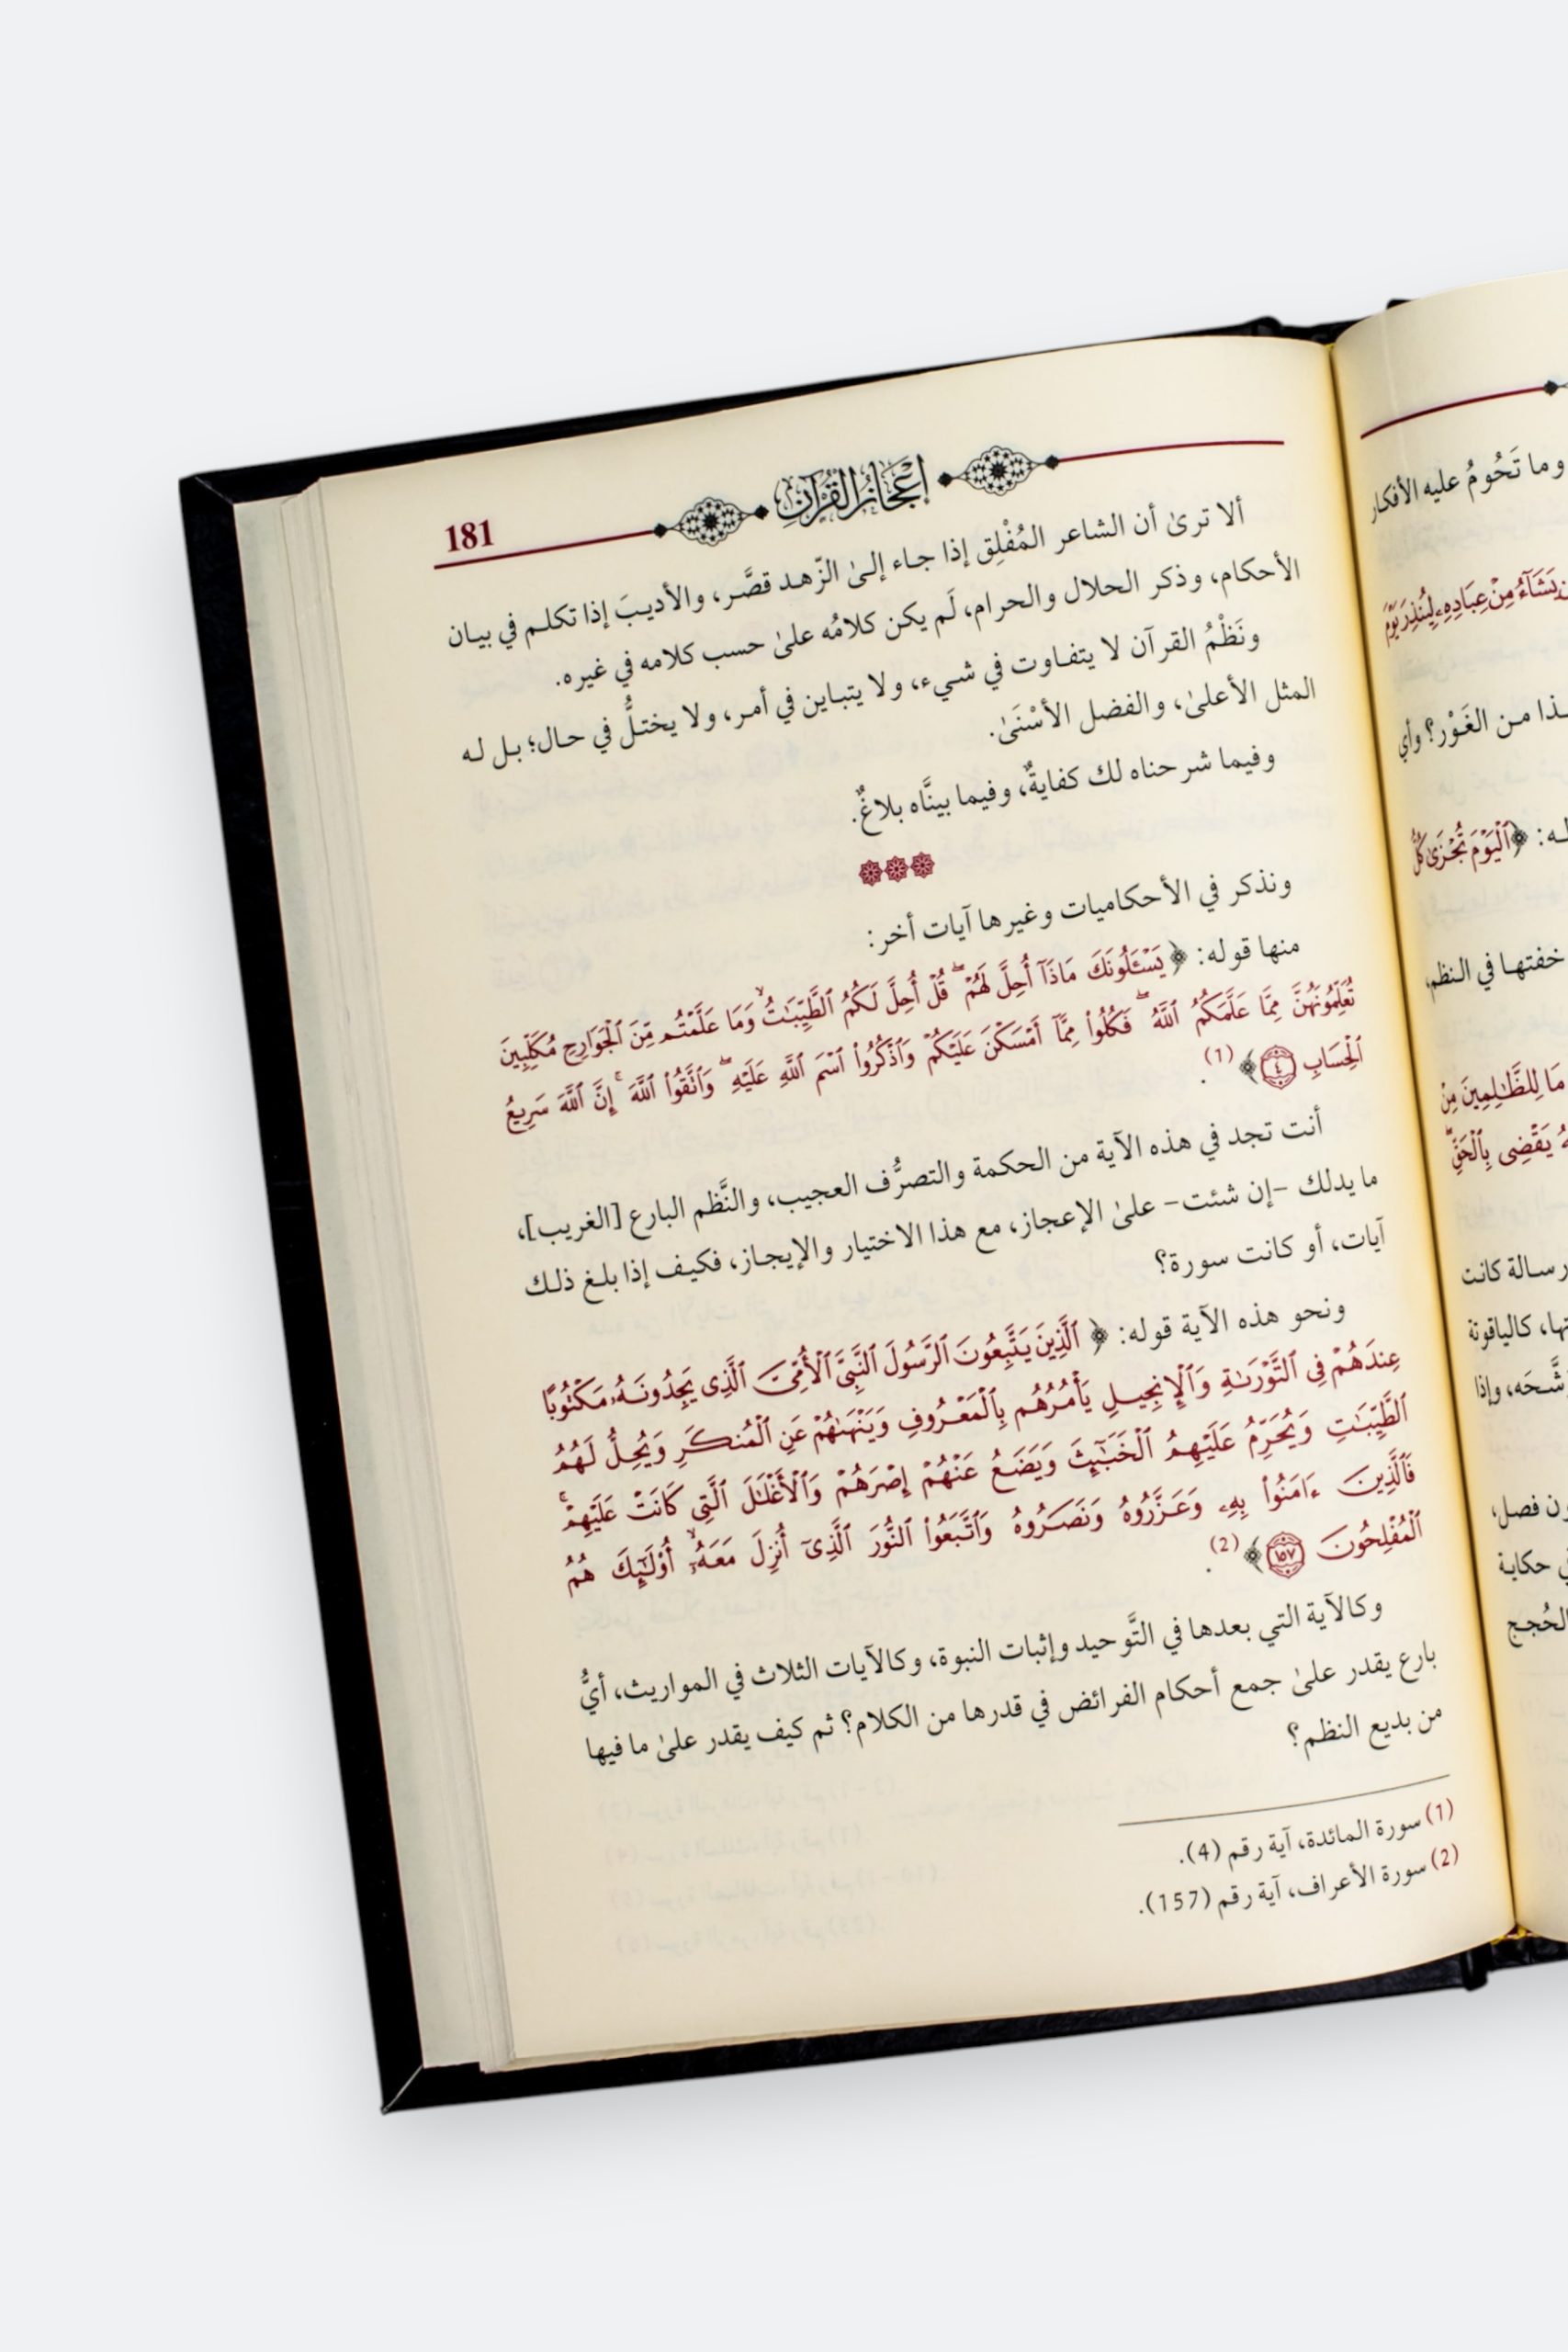 وما تَحُومُ عليه الأفكار
نَشَآءُ مِنْ عِبَادِهِۦ لِيُنذِرَ يَوْمَ
من الغَوْر؟ وأي
﴿ٱلْيَوْمَ تُجْزَىٰ كُلُّ
خفتهـا في النظم،
مَا لِلظَّٰلِمِينَ مِنْ
يَقْضِى بِٱلْحَقِّ ۖ
رسـالة كانت
كالياقوتة
وإذا
فصل،
حكاية
الحُجج
إعْجَازُ القُرْآنِ
181
ألا ترىٰ أن الشاعر المُفْلِق إذا جـاء إلـىٰ الزّهـد قصَّـر، والأديـبَ إذا تكلـم في بيـان
الأحكام، وذكر الحلال والحرام، لَم يكن كلامُه علىٰ حسب كلامه في غيره.
ونَظْمُ القرآن لا يتفـاوت في شـيء، ولا يتبـاين في أمـر، ولا يختـلُّ في حـال؛ بـل لـه
المثل الأعلىٰ، والفضل الأسْنَىٰ.
وفيما شرحناه لك كفايةٌ، وفيما بينَّاه بلاغٌ.
ونذكر في الأحكاميات وغيرها آيات أخر:
منها قوله: ﴿يَسْـَٔلُونَكَ مَاذَآ أُحِلَّ لَهُمْ ۖ قُلْ أُحِلَّ لَكُمُ ٱلطَّيِّبَٰتُ ۙ وَمَا عَلَّمْتُم مِّنَ ٱلْجَوَارِحِ مُكَلِّبِينَ
تُعَلِّمُونَهُنَّ مِمَّا عَلَّمَكُمُ ٱللَّهُ ۖ فَكُلُوا۟ مِمَّآ أَمْسَكْنَ عَلَيْكُمْ وَٱذْكُرُوا۟ ٱسْمَ ٱللَّهِ عَلَيْهِ ۖ وَٱتَّقُوا۟ ٱللَّهَ ۚ إِنَّ ٱللَّهَ سَرِيعُ
ٱلْحِسَابِ ٤﴾(1).
أنت تجد في هذه الآية من الحكمة والتصرُّف العجيب، والنَّظم البارع [الغريب]،
ما يدلك -إن شئت- علىٰ الإعجاز، مع هذا الاختيار والإيجـاز، فكيـف إذا بلـغ ذلـك
آيات، أو كانت سورة؟
ونحو هذه الآية قوله: ﴿ٱلَّذِينَ يَتَّبِعُونَ ٱلرَّسُولَ ٱلنَّبِىَّ ٱلْأُمِّىَّ ٱلَّذِى يَجِدُونَهُۥ مَكْتُوبًا
عِندَهُمْ فِى ٱلتَّوْرَىٰةِ وَٱلْإِنجِيلِ يَأْمُرُهُم بِٱلْمَعْرُوفِ وَيَنْهَىٰهُمْ عَنِ ٱلْمُنكَرِ وَيُحِلُّ لَهُمُ
ٱلطَّيِّبَٰتِ وَيُحَرِّمُ عَلَيْهِمُ ٱلْخَبَٰٓئِثَ وَيَضَعُ عَنْهُمْ إِصْرَهُمْ وَٱلْأَغْلَٰلَ ٱلَّتِى كَانَتْ عَلَيْهِمْ ۚ
فَٱلَّذِينَ ءَامَنُوا۟ بِهِۦ وَعَزَّرُوهُ وَنَصَرُوهُ وَٱتَّبَعُوا۟ ٱلنُّورَ ٱلَّذِىٓ أُنزِلَ مَعَهُۥٓ ۙ أُو۟لَٰٓئِكَ هُمُ
ٱلْمُفْلِحُونَ ١٥٧﴾(2).
وكالآية التي بعدها في التَّوحيد وإثبات النبوة، وكالآيات الثلاث في المواريث، أيُّ
بارع يقدر علىٰ جمع أحكام الفرائض في قدرها من الكلام؟ ثم كيف يقدر علىٰ ما فيها
من بديع النظم؟
(1) سورة المائدة، آية رقم (4).
(2) سورة الأعراف، آية رقم (157).